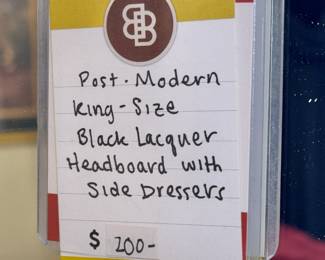 BLB
Post. Modern
King-Size
Black Lacquer
Headboard with
Side Dressers
$ 200-